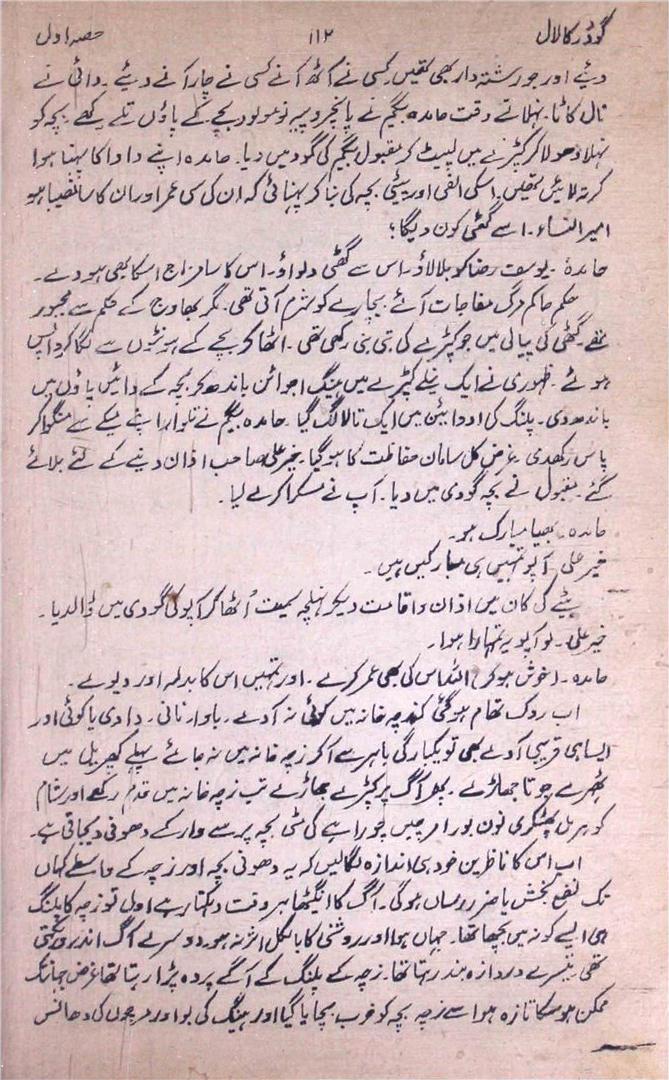 گودڑ کا لال ۱۱۲ حصہ اول
دیئے اور جو رشتہ دار بھی تھیں کسی نے آٹھ آنے کسی نے چار آنے دیئے۔ دائی نے
نال کاٹا۔ نہلاتے وقت حامدہ بیگم نے پانچروپیہ نومولود بچے کے پاؤں تلے رکھے بچہ کو
نہلا دھولا کر کپڑے میں لپیٹ کر مقبول بیگم کی گود میں دیا۔ حامدہ اپنے دادا کا پہنا ہوا
کرتہ لائیں تھیں۔ اسکی الفی اور پیٹی بچہ کی بنا کر پہنائی کہ ان کی سی عمر اور ان کا سا نصیبا ہو
امیر النساء۔ اسے گھٹی کون دیگا؟
حامدہ۔ یوسف رضا کو بلالاؤ۔ اس سے گھٹی دلواؤ۔ اس کا سا مزاج اسکا بھی ہووے۔
حکم حاکم مرگ مفاجات آئے بیچارے کو شرم آتی تھی۔ مگر بھاوج کے حکم سے مجبور
تھے گھٹی کی پیالی میں جو کپڑے کی بتی رکھی تھی۔ اٹھا کر بچے کے ہونٹوں سے لگا کر واپس
ہوئے۔ ظہوری نے ایک نیلے کپڑے میں ہینگ اجوائن باندھ کر بچہ کے دائیں پاؤں میں
باندھ دی۔ پلنگ کی ادوائین میں ایک تالا لگ گیا۔ حامدہ بیگم نے تلوار اپنے میکے سے منگوا کر
پاس رکھدی۔ غرض کل سامان حفاظت کا ہو گیا۔ خیر علی صاحب اذان دینے کے لئے بلائے
گئے۔ مقبول نے بچہ گودی میں دیا۔ آپ نے مسکرا کر لے لیا۔
حامدہ۔ بھیا مبارک ہو۔
خیر علی۔ آپو تمہیں ہی مبارکیں ہیں۔
بیٹے کی کان میں اذان و اقامت دیکر نہالچہ سمیت اُٹھا کر آپو کی گودی میں ڈالدیا۔
خیر علی۔ لو آپو یہ تمہارا ہوا۔
حامدہ۔ (خوش ہو کر) اللہ اس کی بھی عمر کرے۔ اور تمہیں اس کا بدلہ اور دیوے۔
اب روک تھام ہو گئی کہ زچہ خانہ میں کوئی نہ آوے۔ باوا۔ نانی۔ دادی یا کوئی اور
ایسا ہی قریبی آدے بھی تو یکبارگی باہر سے آ کر زچہ خانہ میں نہ جائے پہلے کھپریل میں
ٹھہرے جوتا جھاڑے۔ پھر آگ پر کپڑے جھاڑے تب زچہ خانہ میں قدم رکھے اور شام
کو ہرمل پھٹکری نون بورا مرچیں چوراہے کی مٹی بچہ پر سے وار کے دھونی دیجاتی ہے۔
اب اس کا ناظرین خود ہی اندازہ لگالیں کہ یہ دھونی بچہ اور زچہ کے واسطے کہاں
تک نفع بخش یا ضرر رساں ہوگی۔ آگ کا انگیٹھا ہر وقت دہکتا رہے اول تو زچہ کا پلنگ
ہی ایسے کونہ میں بچھا تھا۔ جہاں ہوا اور روشنی کا بالکل اثر نہ ہو۔ دوسرے آگ اندر دہکتی
تھی۔ تیسرے دروازہ بند رہتا تھا۔ زچہ کے پلنگ کے آگے پردہ پڑا رہتا تھا غرض جہانتک
ممکن ہو سکا تازہ ہوا سے زچہ بچہ کو خوب بچایا گیا اور ہینگ کی بو اور مرچوں کی دھانس